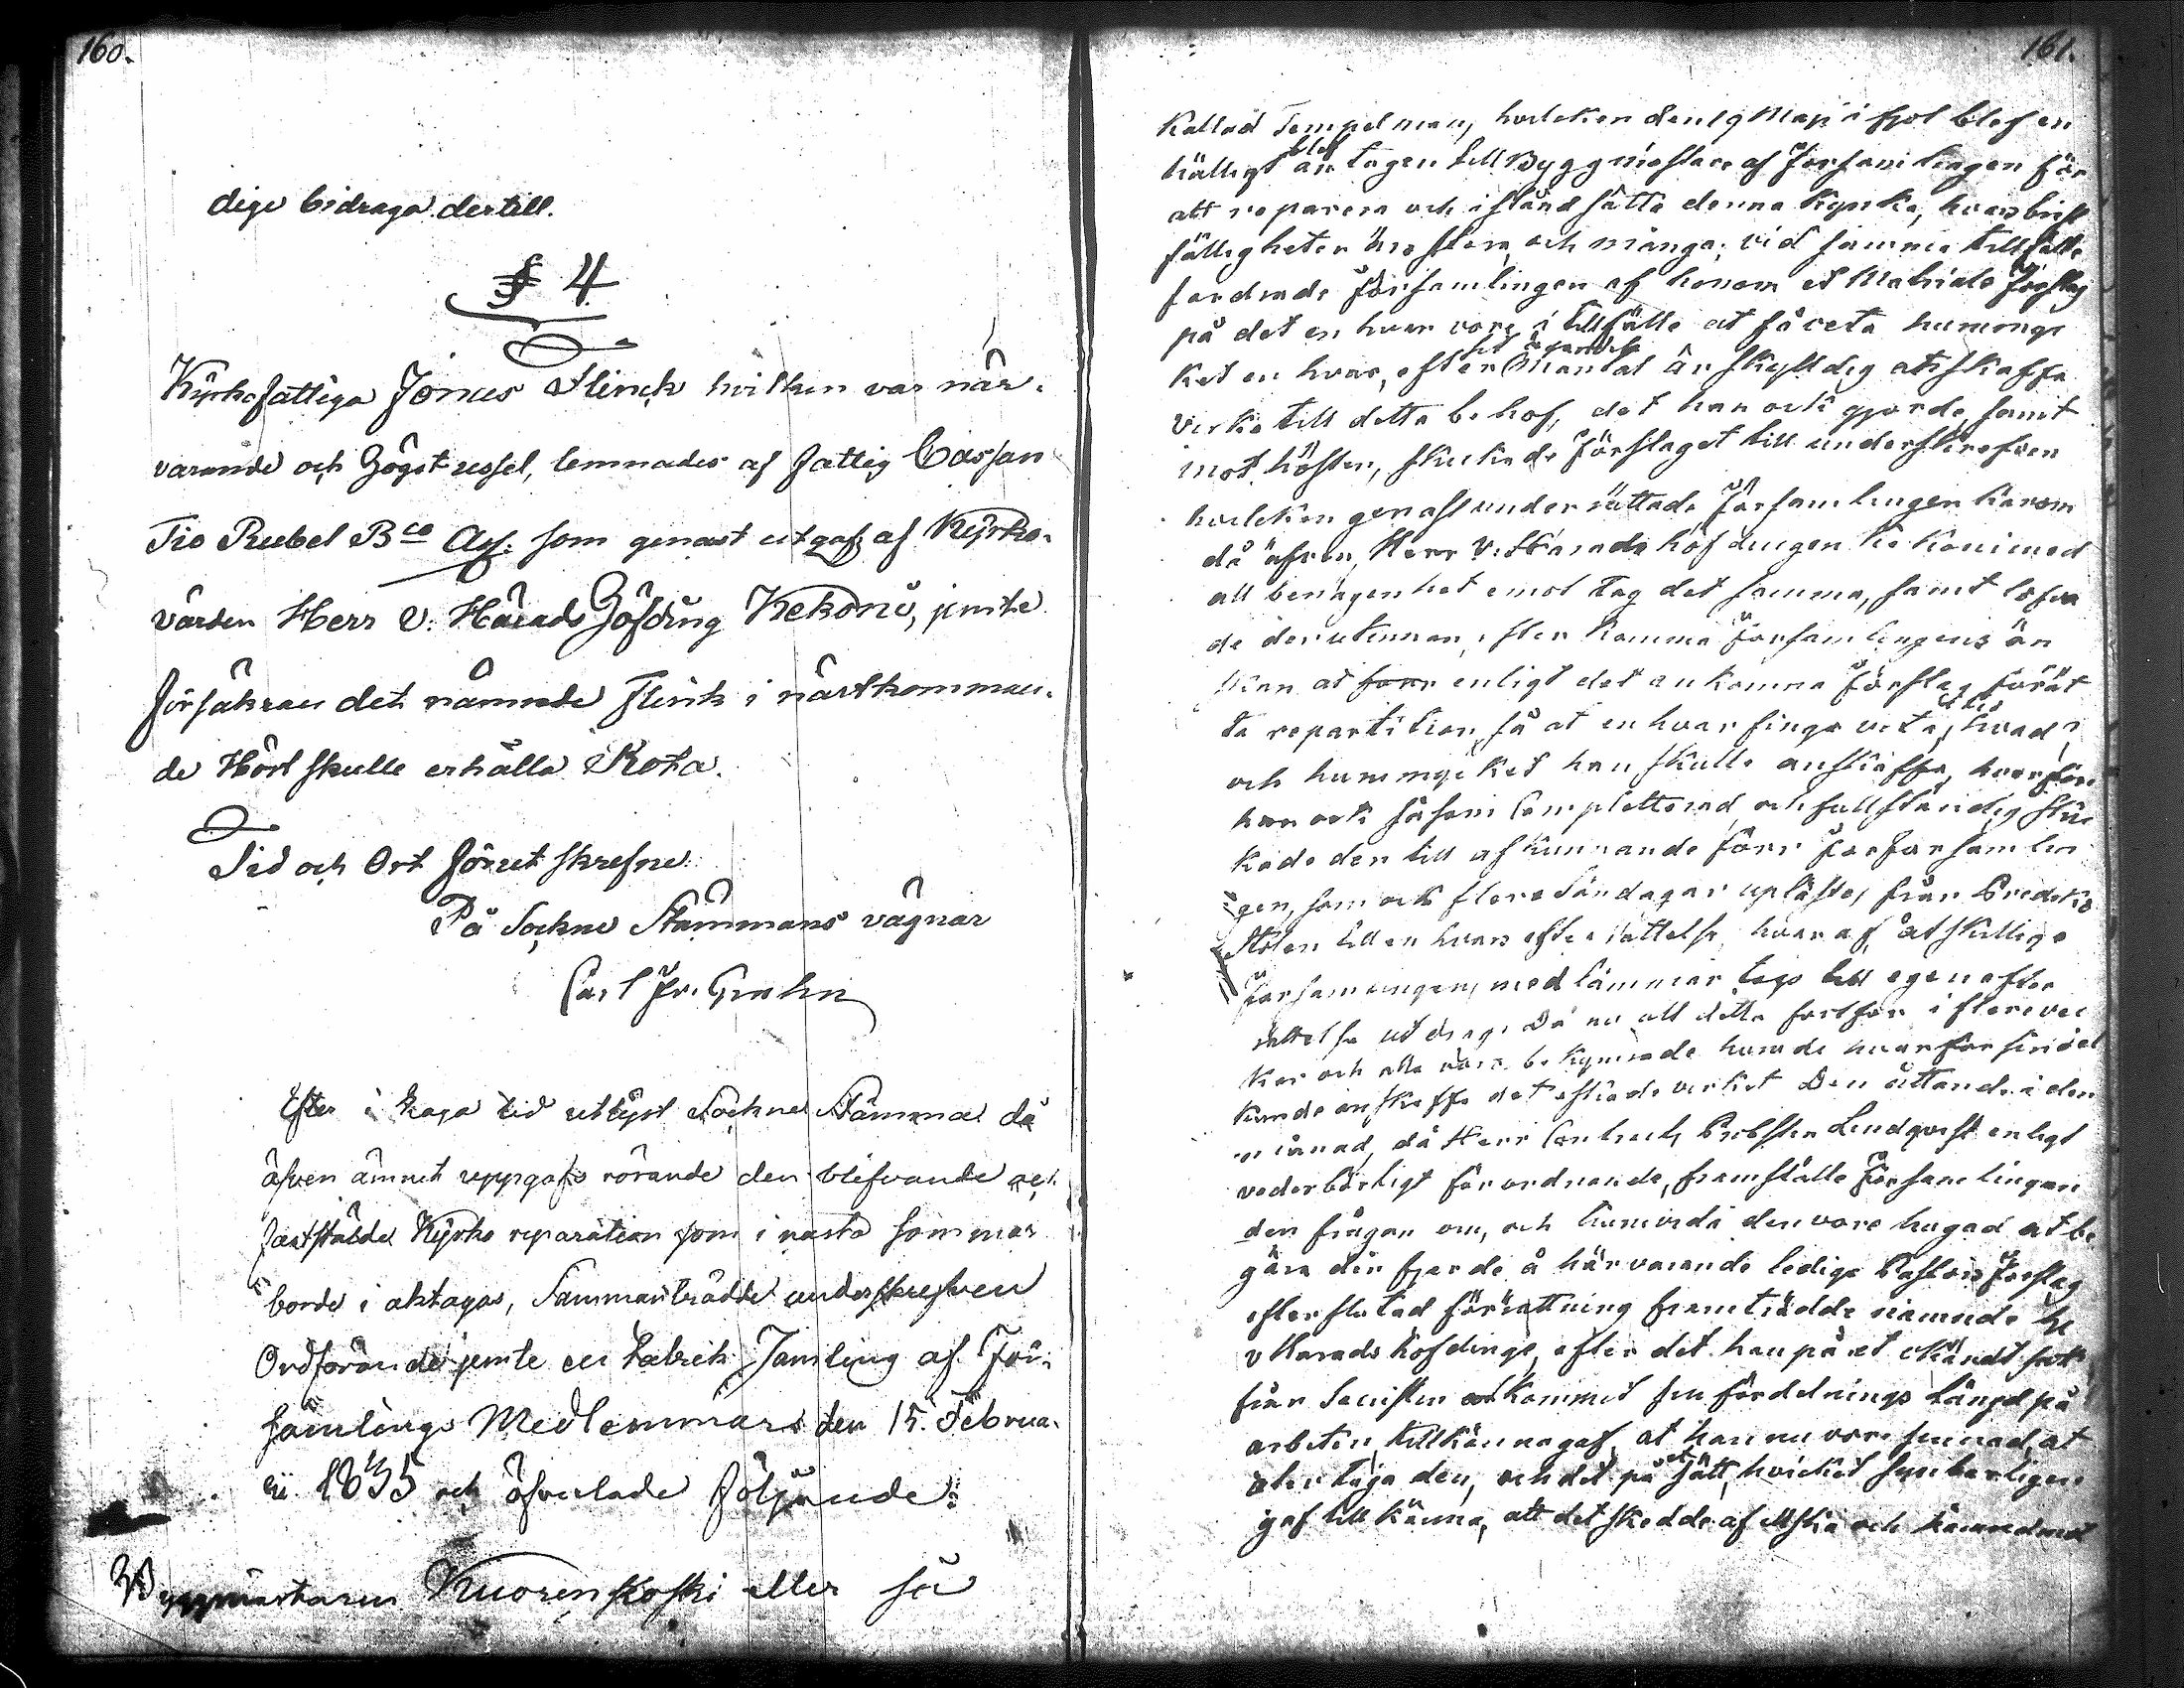 160.
dige bidraga dertill.
§ 4
Kyrkofattiga Jonas Flinck hvilken var när-
varande och högst ussel, lemnades af fattig Cassan
Tio Rubel Bco Ass: som genast utgafs af Kyrko-
värden Herr V. Härads Höfding Kekoni, jemte
försäkran det nämnde Flink i nästkomman-
de Höst skulle erhålla Rota.
Tid och Ort förutskrefne
På Sockne Stämmans vägnar
Carl Fr. Grahn
Efter i laga tid utlyst Sockne Stämma då
äfven ämnet uppgafs rörande den blifvande och
fastställde Kyrko reparation som i nästa sommar
borde i akttagas, Sammanträdde underskrefven
Ordförande jemte en talrik Samling af För-
samlings Medlemmars den 15. Februa-
rii 1835 och afhandlade följande:
Byggmästaren Kuorenkoski eller så
161.
Kallad Tempelman, hvilken den 19 Maji i fjol blef en
hälligt antagen till Byggmästare af Församlingen för
att reparera och iståndsätta denna Kyrka, hvars brist
fälligheter äro stora och många; vid samma tillfälle
fordrade Församlingen af honom et Materials Förslag
på det en hvar vore i tillfälle at få veta huru myc
ket en hvar, efter sit egande Mantal är skylldig at skaffa
virke till detta behof, det han ock gjorde samt
imot hösten, skickade Förslaget till underskrefven
hvilken genast underrättade Församlingen härom
då äfven Herr V. Häradshöfdingen Kekoni med
all benägenhet emot tog det samma, samt lofva
de derutinnan efterkomma Församlingens ön
skan at enligt det ankomna Förslag författ
ta repartition så at en hvar finge veta, hvad
och huru mycket han skulle anskaffa, hvarföre
han ock såsom Completterad och fullständig skic
kade den till afkunnande förr Församlin
gen, som ock flera Söndagar uplästes från Predik
Stolen till en hvars efterrättelse, hvar af åtskillige
Församlingens medlämmar togo till egen efter
rättelse utdrag. Då nu allt detta fortfor i flere vec
kor och alla voro bekymrade huru de hvar för sin del
kunde anskaffa det virket Den åttande i den
månad, då Herr Contracts Probsten Lindqvist enligt
vederbörligt förordnande, framställte Församlingen
den frågan om, och huruvida den vore hugad at be
gära den fjerde å härvarande lediga Pastors Förslag
efter slutad förrättning framträdde nämnde He
v Häradshöfdinge, efter det han på et okändt sätt
från Sacristian kommit sin fördelnings längd på
arbeten, tillkännagaf, at han nu vore sinnad at
åter taga den, och det på et sätt, hvilket synbarligen
gaf tillkänna, att det skedde af illska och hämndmot